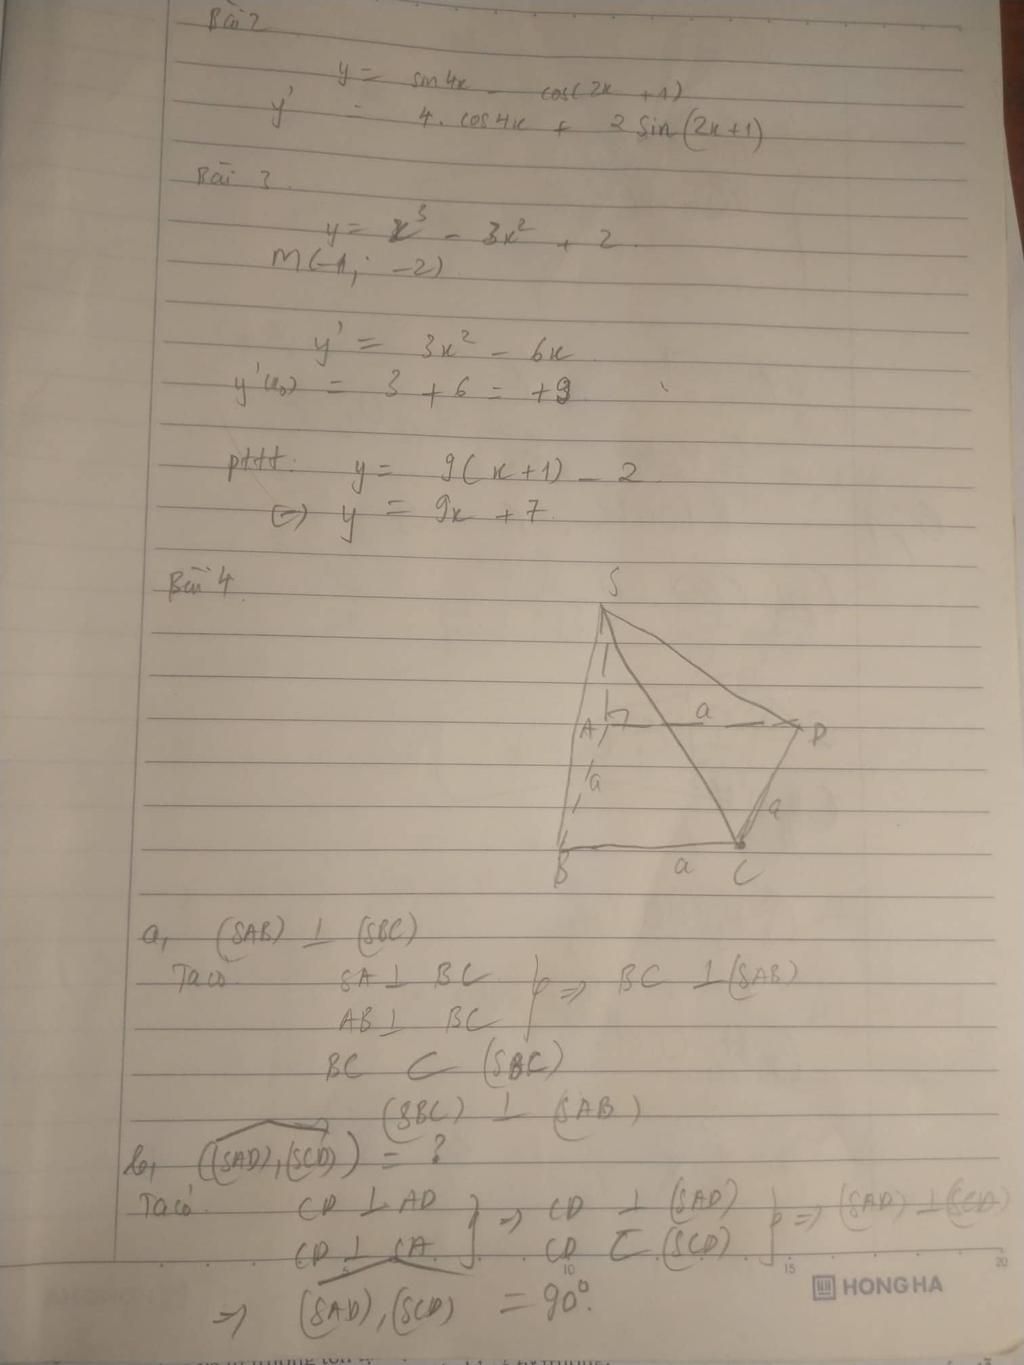 Bài 2
y = sin4x - cos(2x + 1)
y' = 4. cos4x + 2 sin(2x+1)
Bài 3
y = x³ - 3x² + 2
M(-1; -2)
y' = 3x² - 6x
y'(x₀) = 3 + 6 = +9
pttt: y = 9(x+1) - 2
⇔ y = 9x + 7
Bài 4
S
A a D
a
a
B a C
a, (SAB) ⊥ (SBC)
Ta có SA ⊥ BC } ⇒ BC ⊥ (SAB)
AB ⊥ BC
BC ⊂ (SBC)
(SBC) ⊥ (SAB)
b, ((SAD),(SCD)) = ?
Ta có CD ⊥ AD } ⇒ CD ⊥ (SAD) } ⇒ (SAD) ⊥ (SCD)
CD ⊥ SA CD ⊂ (SCD)
5 10 15 20
HONG HA
⇒ (SAD),(SCD) = 90°.